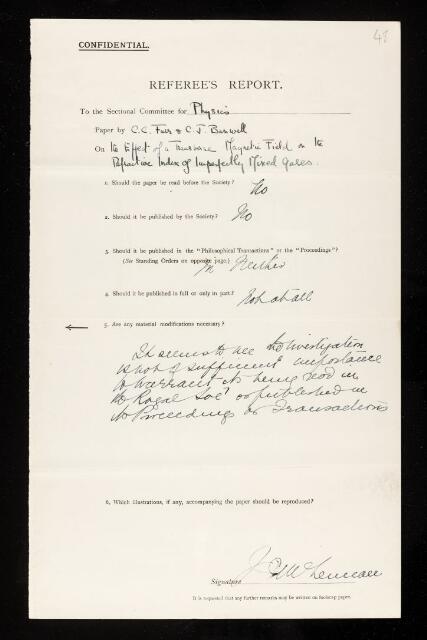 CONFIDENTIAL.
REFEREE'S REPORT.
To the Sectional Committee for Physics
Paper by C.C. & C.J.
On the Effect of a Transverse Magnetic Field on the
Refractive Index of Imperfectly Mixed Gases.
1. Should the paper be read before the Society? No
2. Should it be published by the Society? No
3. Should it be published in the "Philosophical Transactions" or the "Proceedings"?
(See Standing Orders on opposite page.) In Neither
4. Should it be published in full or only in part? Not at all
5. Are any material modifications necessary?
It seems to me the investigation
is not of sufficient importance
to warrant its being read in
the Royal Socy or published in
its Proceedings or Transactions
6. Which illustrations, if any, accompanying the paper should be reproduced?
Signature J C McLennan
It is requested that any further remarks may be written on foolscap paper.